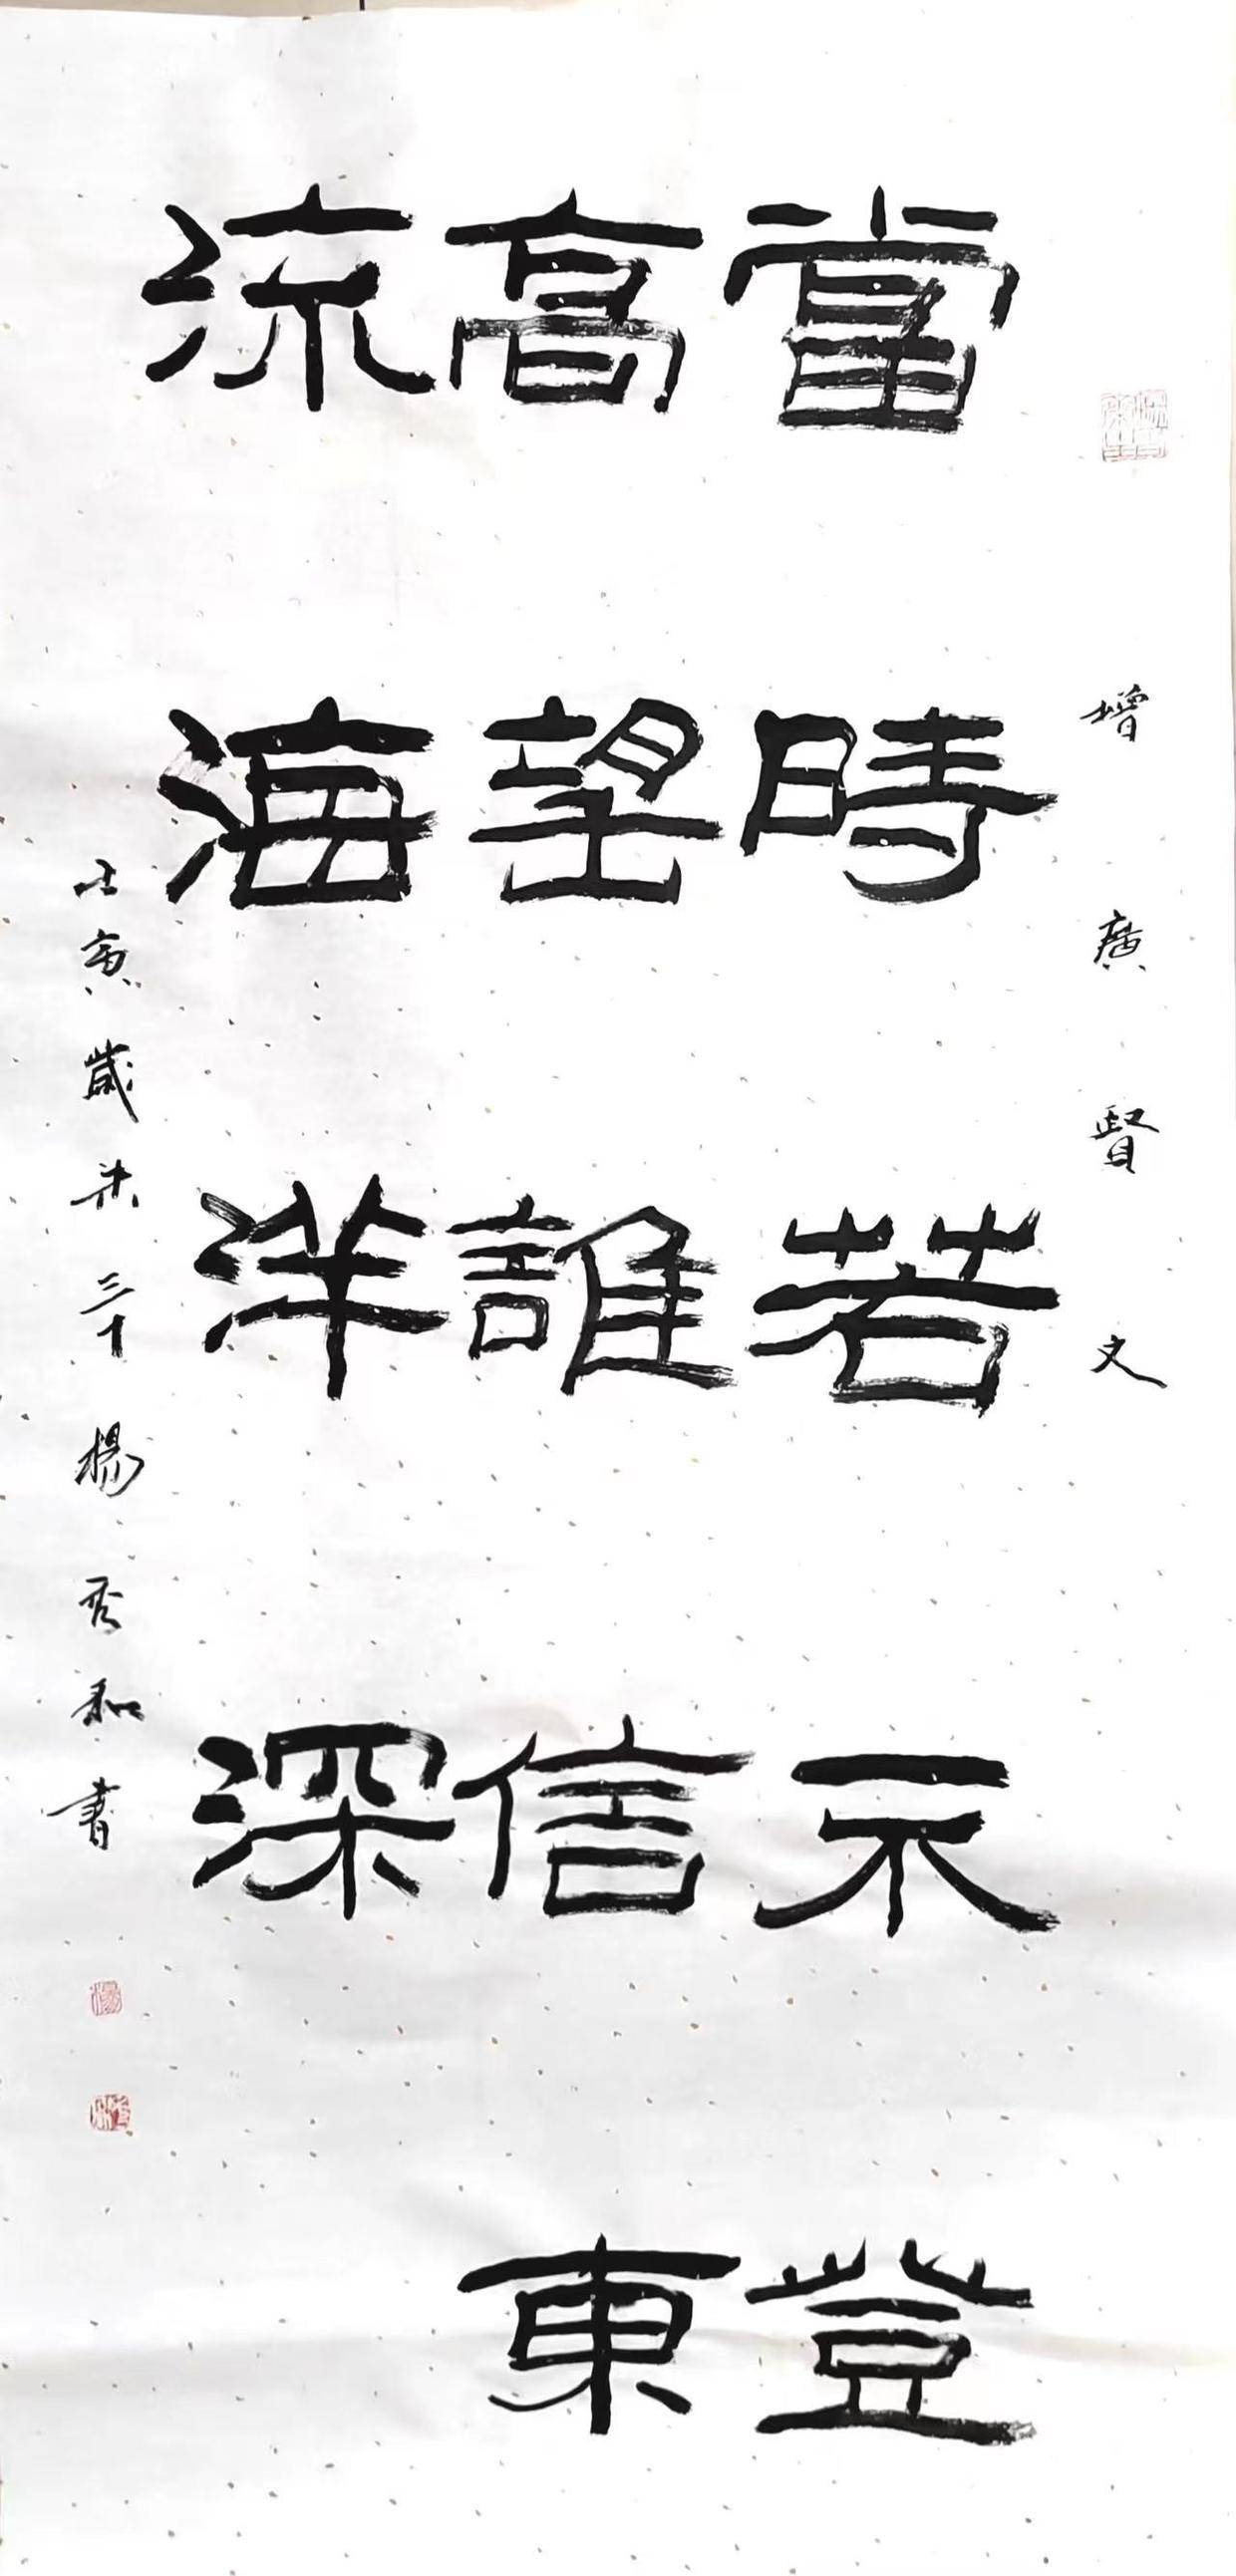 增廣賢文
當時若不登
高望誰信東
流海洋深
壬寅歲末三十楊秀和書